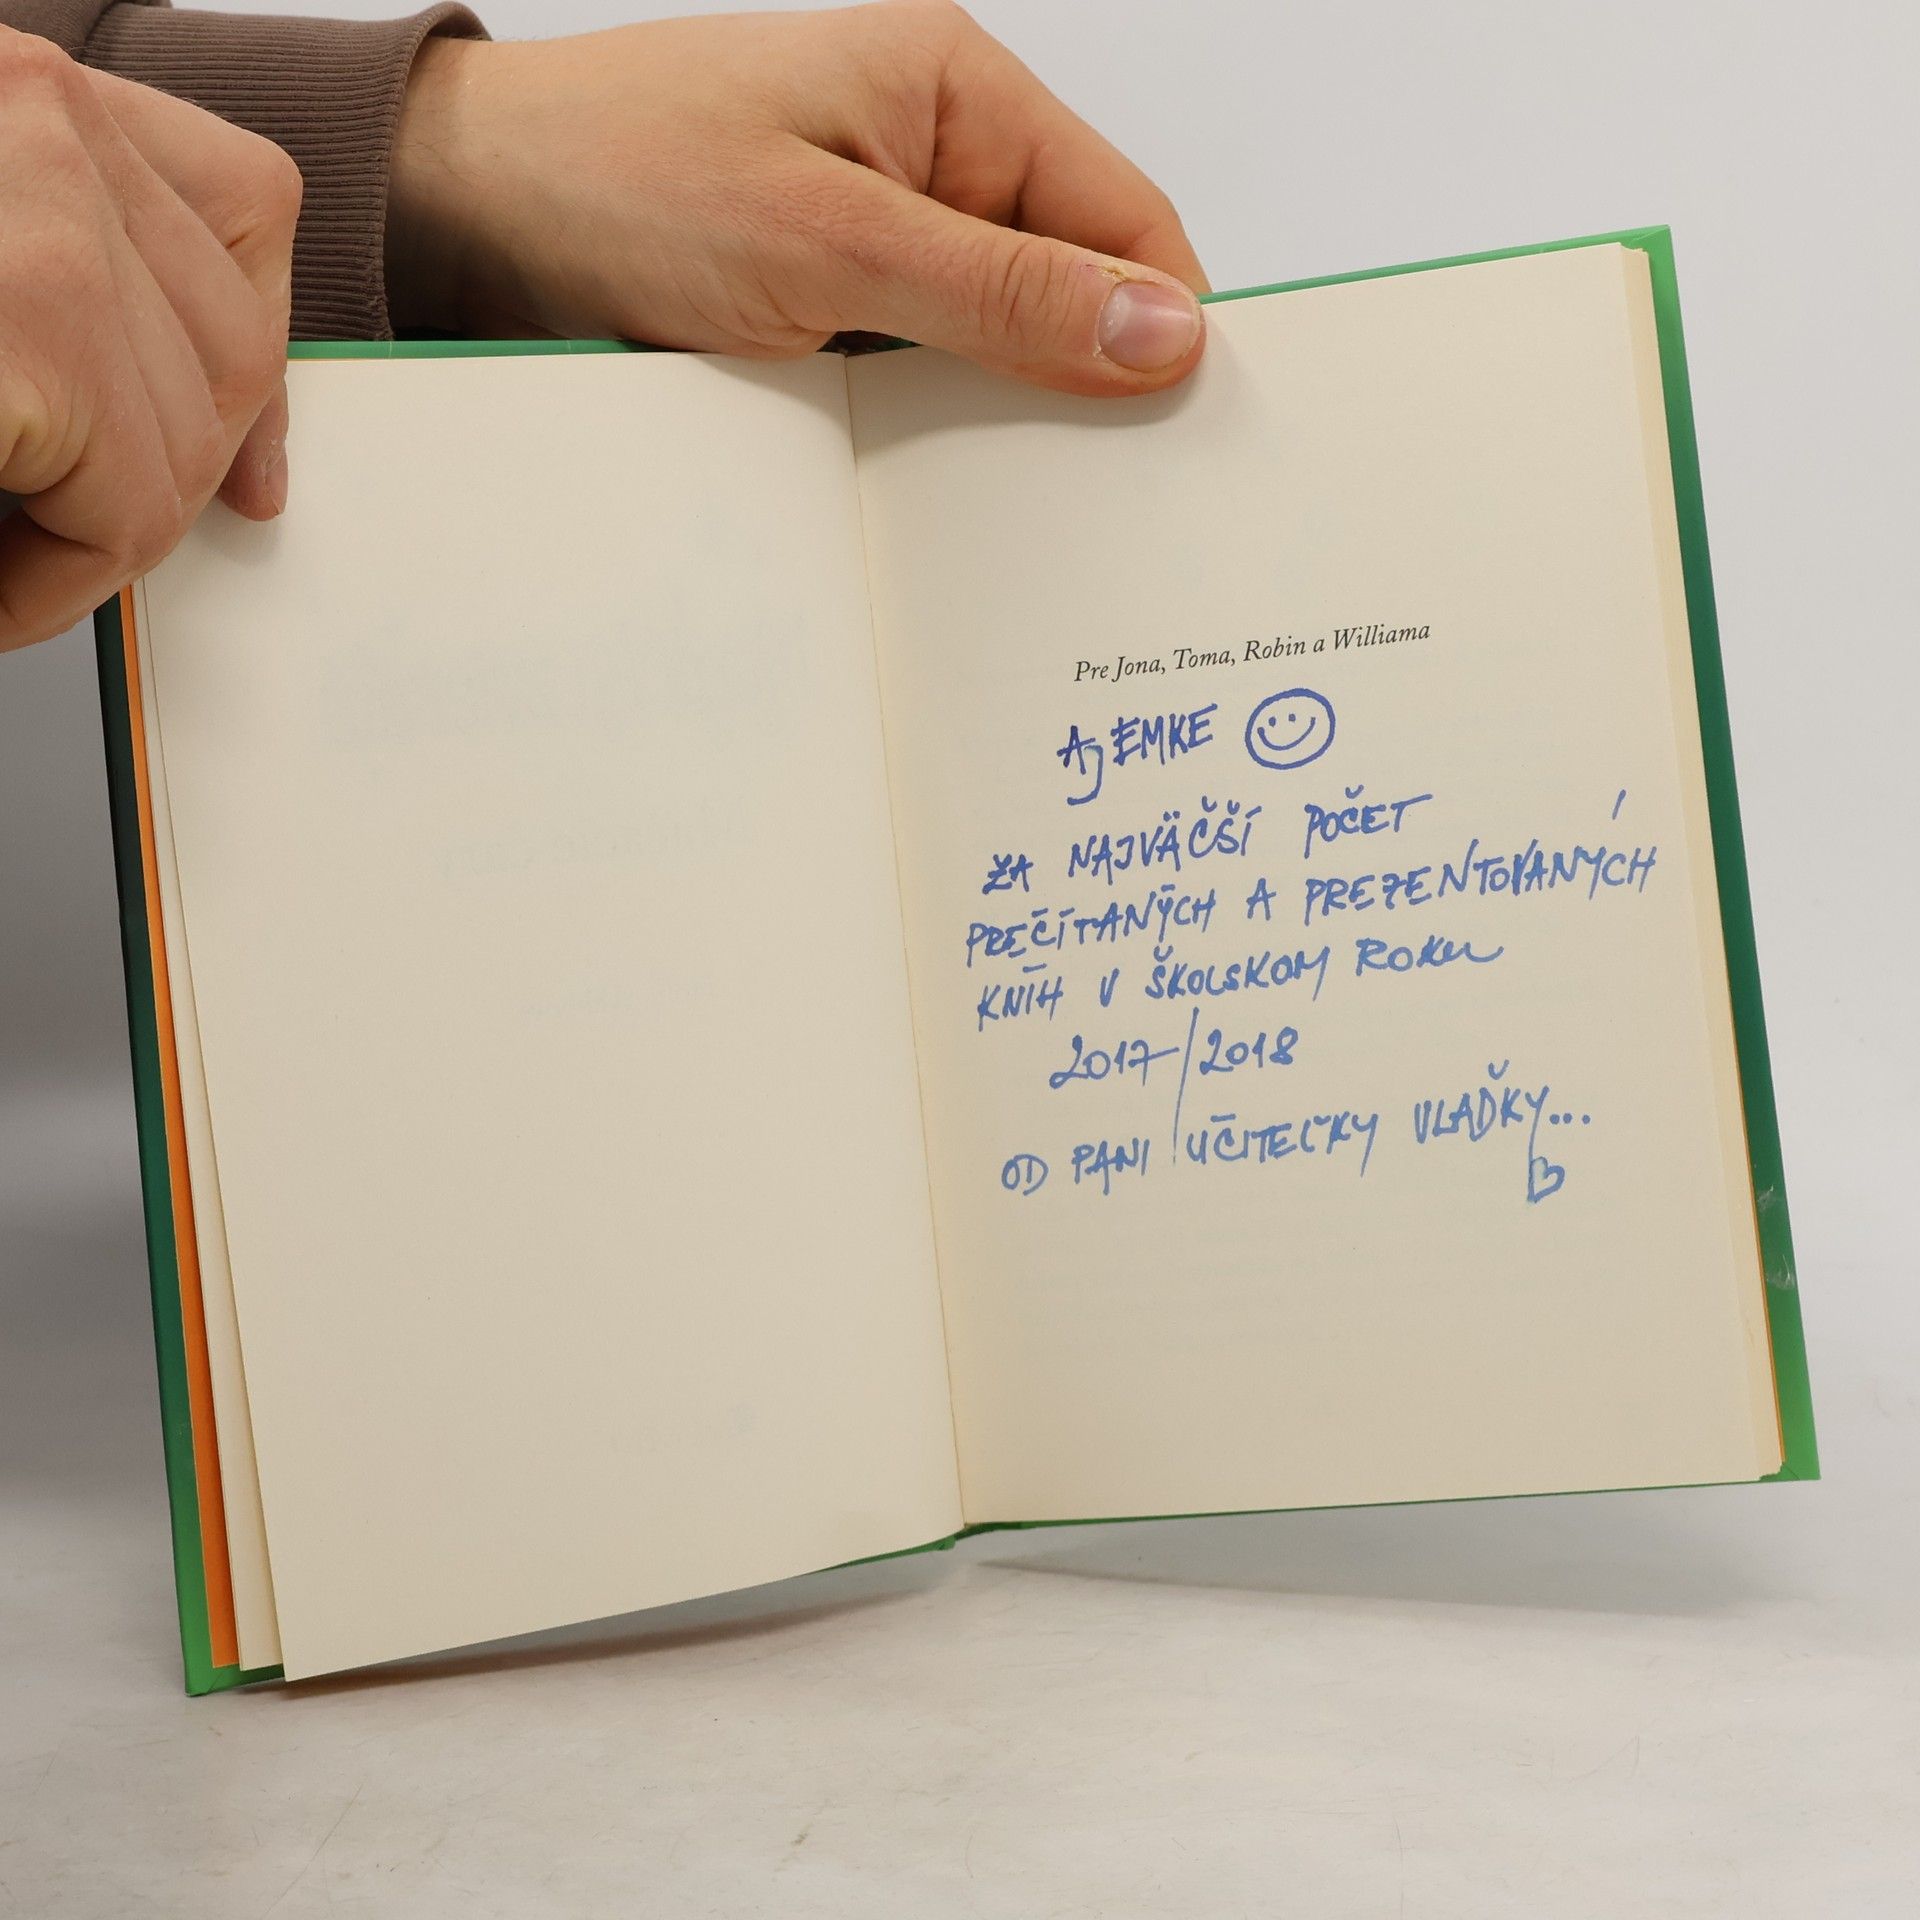 Pre Jona, Toma, Robin a Williama
AJ EMKE
ZA NAJVÄČŠÍ POČET
PREČÍTANÝCH A PREZENTOVANÝCH
KNÍH V ŠKOLSKOM ROKU
2017/2018
OD PANI UČITEĽKY VLAĎKY...